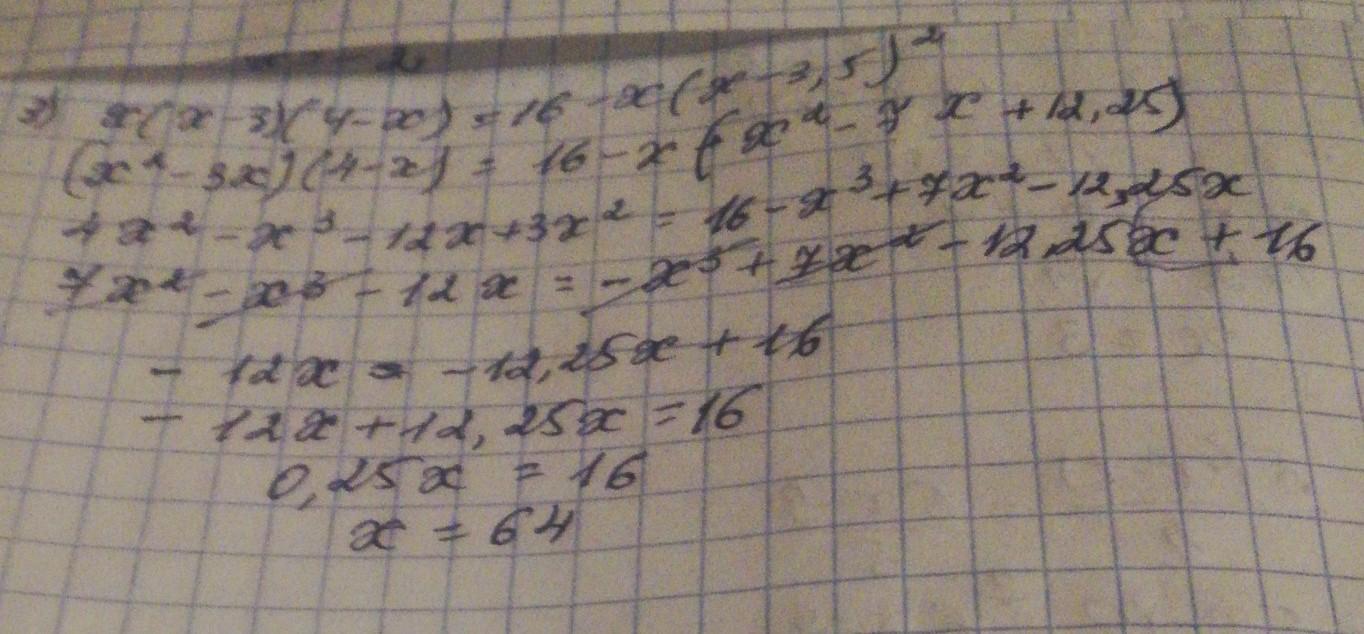 3) x(x-3)(4-x) = 16 - x(x-3,5)²
(x² - 3x)(4-x) = 16 - x(x² - 7x + 12,25)
4x² - x³ - 12x + 3x² = 16 - x³ + 7x² - 12,25x
7x² - x³ - 12x = - x³ + 7x² - 12,25x + 16
- 12x = -12,25x + 16
- 12x + 12,25x = 16
0,25x = 16
x = 64